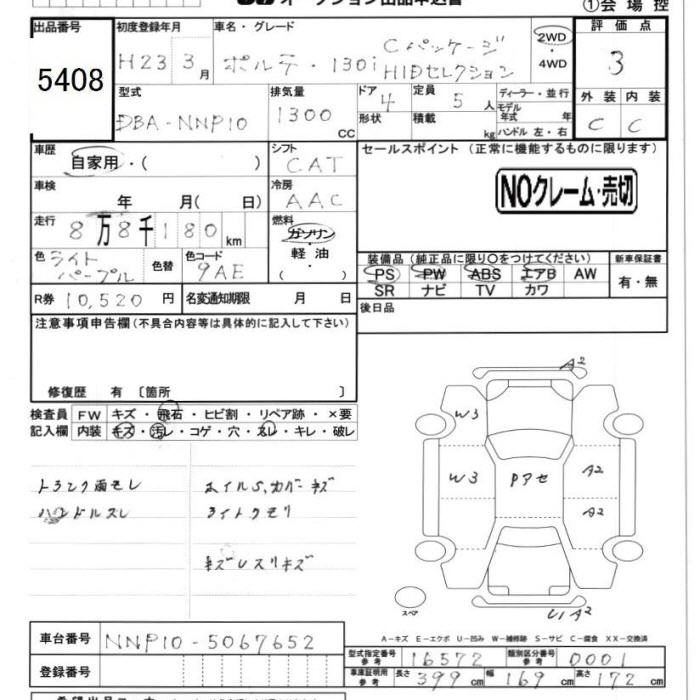 オークション出品申込書
①会場控
出品番号 初度登録年月 車名・グレード 評価点
5408 H23 3月 ポルテ・130i Cパッケージ HIDセレクション 2WD ・4WD 3
型式 排気量 ドア 4 定員 5人 ディーラー・並行 外装 内装
DBA-NNP10 1300 CC 形状 積載 kg モデル年式 年 ハンドル 左・右 C C
車歴 自家用・( ) シフト CAT セールスポイント (正常に機能するものに限ります)
車検 年 月( 日) 冷房 AAC NOクレーム・売切
走行 8万8千180km 燃料 ガソリン・軽油 ( )
色 ライトパープル 色替 色コード 9AE
装備品 (純正品に限り○をつけてください) 新車保証書
PS PW ABS エアB AW 有・無
SR ナビ TV カワ
R券 10,520円 名変通知期限 月 日 後日品
注意事項申告欄(不具合内容等は具体的に記入して下さい)
修復歴 有 〔箇所 〕
検査員 FW キズ・飛石・ヒビ割・リペア跡・×要
記入欄 内装 キズ・汚レ・コゲ・穴・スレ・キレ・破レ
トランク雨モレ ホイルS,カバーキズ
ハンドルスレ ライトクモリ
キズレスリキズ
A2
W3
W3 Pアセ A2
A2
スペア U1 A2
A-キズ E-エクボ U-凹み W-補修跡 S-サビ C-腐食 XX-交換済
車台番号 NNP10-5067652
型式指定番号 参考 16572 類別区分番号 参考 0001
登録番号
車庫証明用 参考 長さ 399cm 幅 169cm 高さ 172cm